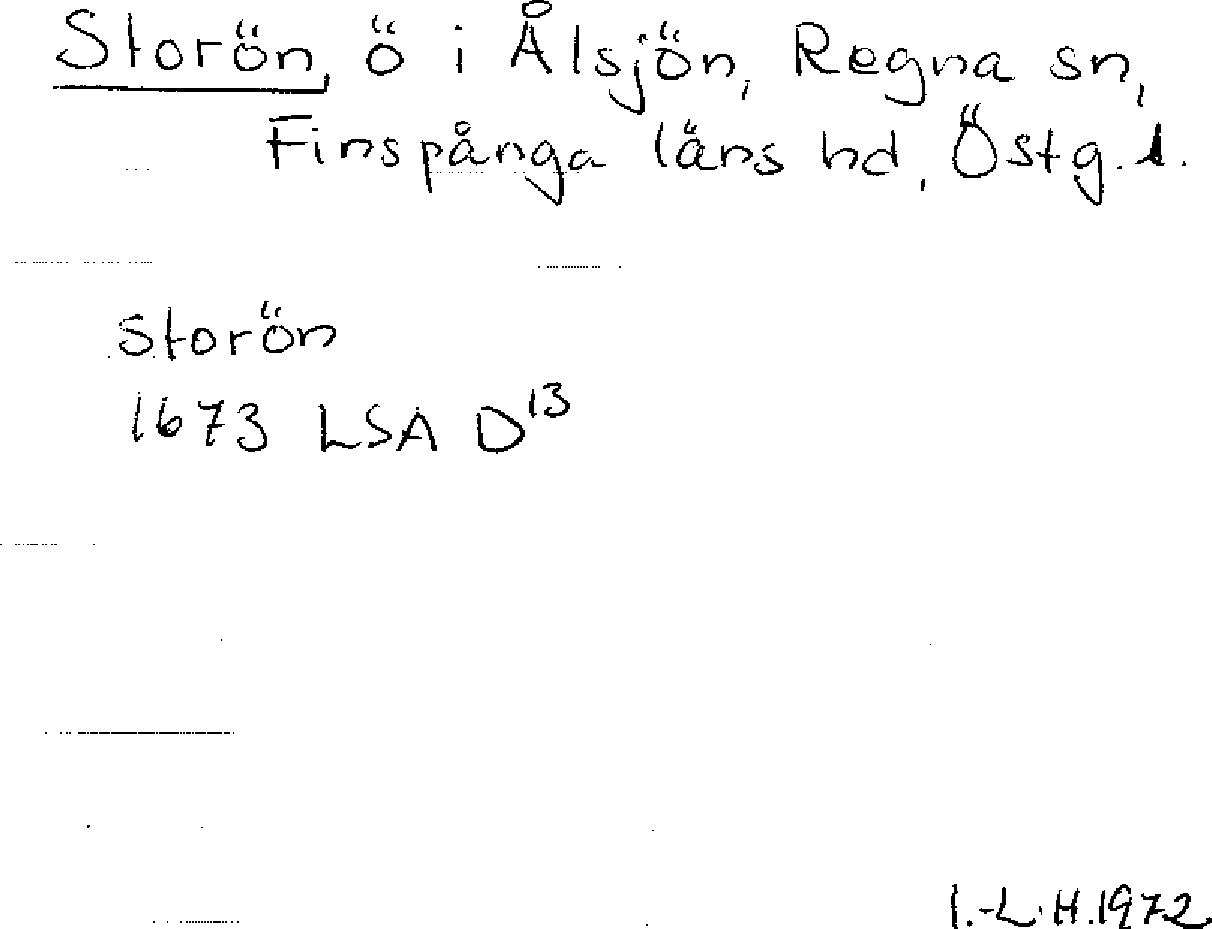 Storön, ö i Ålsjön, Regna sn,
Finspånga läns hd, Östg. l.
Storön
1673 LSA D13
I.-L.H.1972